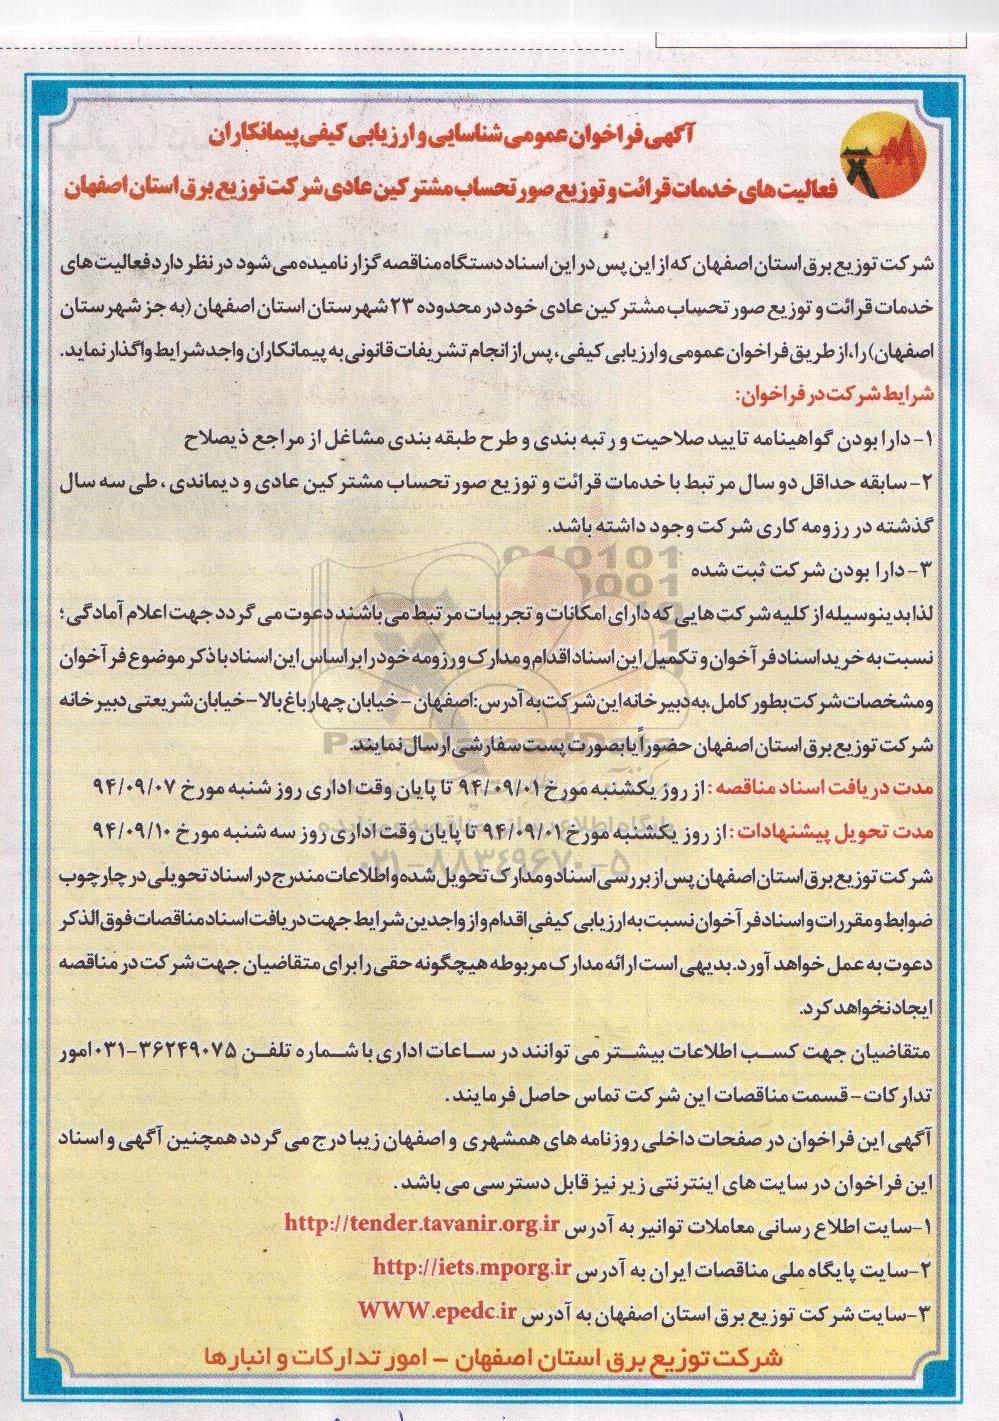 آگهی فراخوان عمومی شناسایی و ارزیابی کیفی پیمانکاران
فعالیت های خدمات قرائت و توزیع صورتحساب مشترکین عادی شرکت توزیع برق استان اصفهان
شرکت توزیع برق استان اصفهان که از این پس در این اسناد دستگاه مناقصه گزار نامیده می شود در نظر دارد فعالیت های
خدمات قرائت و توزیع صورتحساب مشترکین عادی خود در محدوده ۲۳ شهرستان استان اصفهان (به جز شهرستان
اصفهان) را، از طریق فراخوان عمومی و ارزیابی کیفی، پس از انجام تشریفات قانونی به پیمانکاران واجد شرایط واگذار نماید.
شرایط شرکت در فراخوان:
۱- دارا بودن گواهینامه تایید صلاحیت و رتبه بندی و طرح طبقه بندی مشاغل از مراجع ذیصلاح
۲- سابقه حداقل دو سال مرتبط با خدمات قرائت و توزیع صورتحساب مشترکین عادی و دیماندی ، طی سه سال
گذشته در رزومه کاری شرکت وجود داشته باشد.
۳- دارا بودن شرکت ثبت شده
لذا بدینوسیله از کلیه شرکت هایی که دارای امکانات و تجربیات مرتبط می باشند دعوت می گردد جهت اعلام آمادگی؛
نسبت به خرید اسناد فرآخوان و تکمیل این اسناد اقدام و مدارک و رزومه خود را بر اساس این اسناد با ذکر موضوع فرآخوان
و مشخصات شرکت بطور کامل، به دبیرخانه این شرکت به آدرس: اصفهان - خیابان چهارباغ بالا - خیابان شریعتی دبیرخانه
شرکت توزیع برق استان اصفهان حضوراً یا بصورت پست سفارشی ارسال نمایند.
مدت دریافت اسناد مناقصه : از روز یکشنبه مورخ ۹۴/۰۹/۰۱ تا پایان وقت اداری روز شنبه مورخ ۹۴/۰۹/۰۷
مدت تحویل پیشنهادات : از روز یکشنبه مورخ ۹۴/۰۹/۰۱ تا پایان وقت اداری روز سه شنبه مورخ ۹۴/۰۹/۱۰
شرکت توزیع برق استان اصفهان پس از بررسی اسناد و مدارک تحویل شده و اطلاعات مندرج در اسناد تحویلی در چارچوب
ضوابط و مقررات و اسناد فرآخوان نسبت به ارزیابی کیفی اقدام و از واجدین شرایط جهت دریافت اسناد مناقصات فوق الذکر
دعوت به عمل خواهد آورد. بدیهی است ارائه مدارک مربوطه هیچگونه حقی را برای متقاضیان جهت شرکت در مناقصه
ایجاد نخواهد کرد.
متقاضیان جهت کسب اطلاعات بیشتر می توانند در ساعات اداری با شماره تلفن ۳۶۲۴۹۰۷۵-۰۳۱ امور
تدارکات - قسمت مناقصات این شرکت تماس حاصل فرمایند .
آگهی این فراخوان در صفحات داخلی روزنامه های همشهری و اصفهان زیبا درج می گردد همچنین آگهی و اسناد
این فراخوان در سایت های اینترنتی زیر نیز قابل دسترسی می باشد .
۱- سایت اطلاع رسانی معاملات توانیر به آدرس http://tender.tavanir.org.ir
۲- سایت پایگاه ملی مناقصات ایران به آدرس http://iets.mporg.ir
۳- سایت شرکت توزیع برق استان اصفهان به آدرس WWW.epedc.ir
شرکت توزیع برق استان اصفهان - امور تدارکات و انبارها
۰۲۱-۸۸۳۴۹۶۷۰-۵